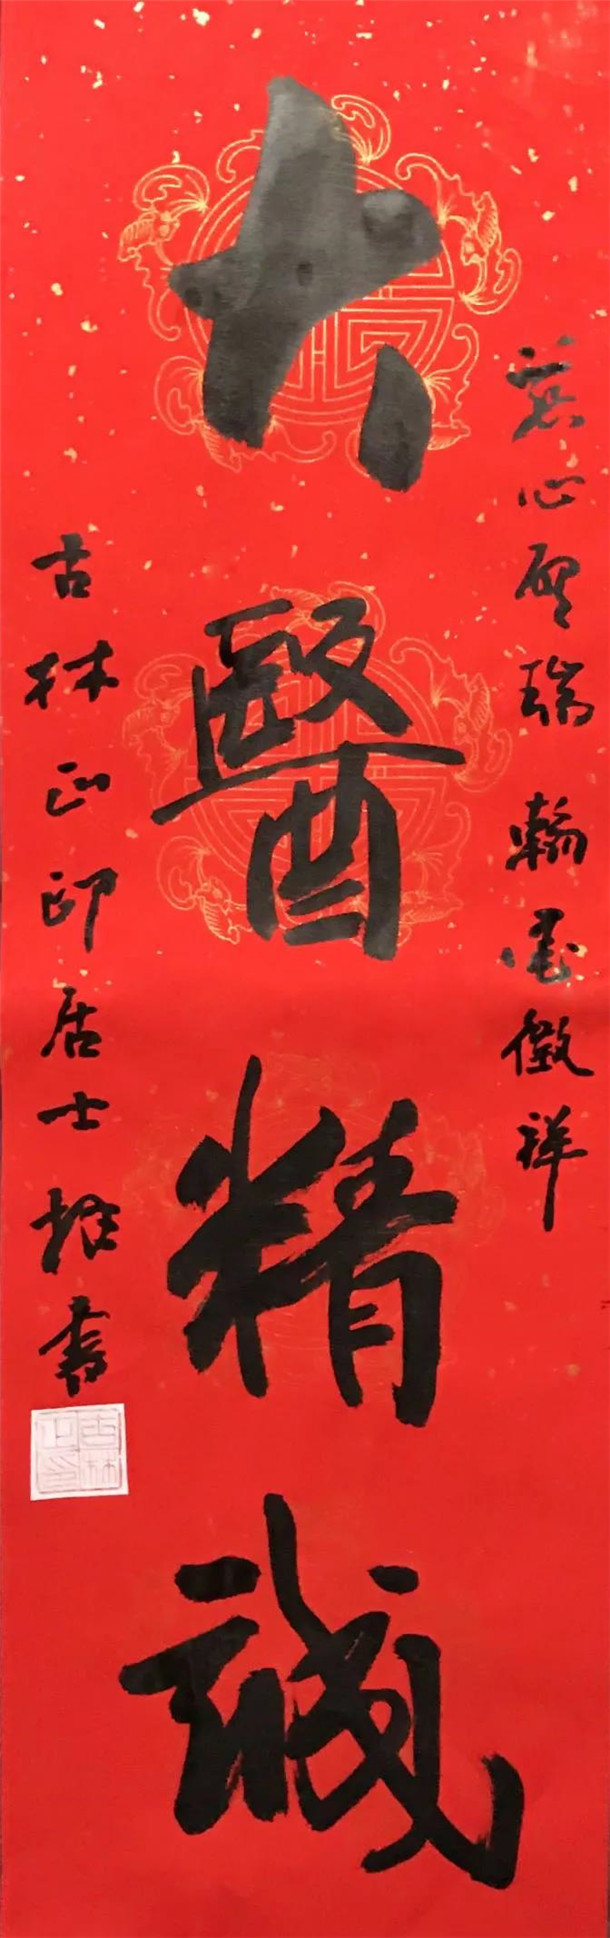 慈心瑞翰墨徵祥
大醫精誠
古林正印居士書
古林正印